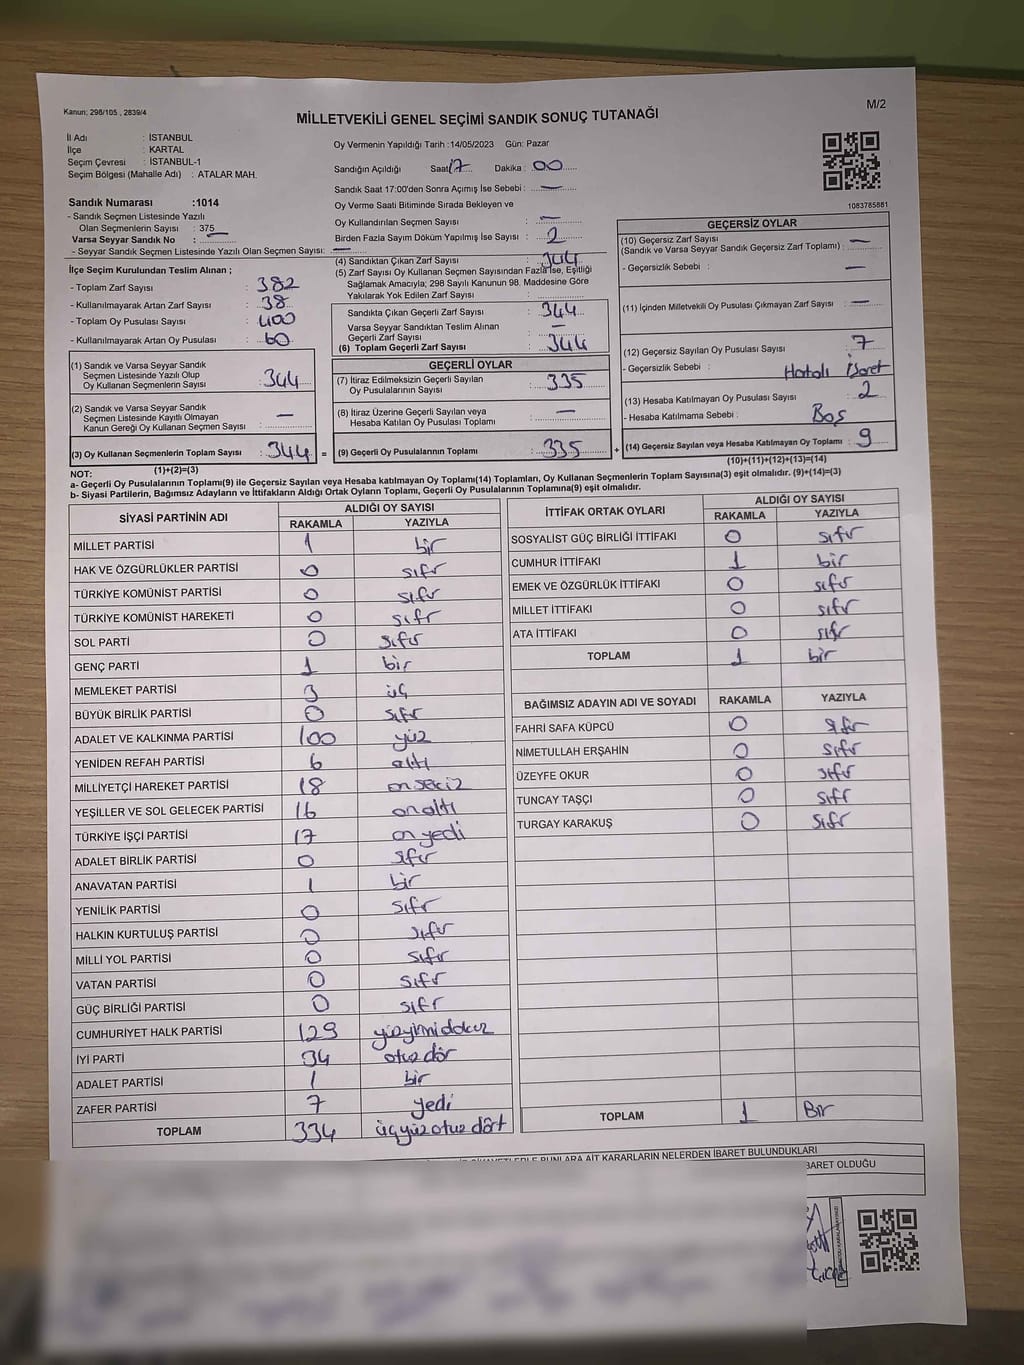 Kanun: 298/105 , 2839/4
M/2
MİLLETVEKİLİ GENEL SEÇİMİ SANDIK SONUÇ TUTANAĞI
İl Adı : İSTANBUL
İlçe : KARTAL
Seçim Çevresi : İSTANBUL-1
Seçim Bölgesi (Mahalle Adı) : ATALAR MAH.
Oy Vermenin Yapıldığı Tarih :14/05/2023 Gün: Pazar
Sandığın Açıldığı Saat 17 Dakika : 00
Sandık Saat 17:00'den Sonra Açılmış İse Sebebi : —
Oy Verme Saati Bitiminde Sırada Bekleyen ve
Oy Kullandırılan Seçmen Sayısı : —
Birden Fazla Sayım Döküm Yapılmış İse Sayısı : 2
1083785881
Sandık Numarası :1014
- Sandık Seçmen Listesinde Yazılı
Olan Seçmenlerin Sayısı : 375
Varsa Seyyar Sandık No : —
- Seyyar Sandık Seçmen Listesinde Yazılı Olan Seçmen Sayısı: —
İlçe Seçim Kurulundan Teslim Alınan ;
- Toplam Zarf Sayısı : 382
- Kullanılmayarak Artan Zarf Sayısı : 38
- Toplam Oy Pusulası Sayısı : 400
- Kullanılmayarak Artan Oy Pusulası : 60
(1) Sandık ve Varsa Seyyar Sandık
Seçmen Listesinde Yazılı Olup
Oy Kullanan Seçmenlerin Sayısı : 344
(2) Sandık ve Varsa Seyyar Sandık
Seçmen Listesinde Kayıtlı Olmayan
Kanun Gereği Oy Kullanan Seçmen Sayısı : —
(3) Oy Kullanan Seçmenlerin Toplam Sayısı : 344 =
(1)+(2)=(3)
(4) Sandıktan Çıkan Zarf Sayısı : 344
(5) Zarf Sayısı Oy Kullanan Seçmen Sayısından Fazla İse, Eşitliği
Sağlamak Amacıyla; 298 Sayılı Kanunun 98. Maddesine Göre
Yakılarak Yok Edilen Zarf Sayısı :
Sandıkta Çıkan Geçerli Zarf Sayısı : 344
Varsa Seyyar Sandıktan Teslim Alınan
Geçerli Zarf Sayısı : —
(6) Toplam Geçerli Zarf Sayısı : 344
GEÇERLİ OYLAR
(7) İtiraz Edilmeksizin Geçerli Sayılan
Oy Pusulalarının Sayısı : 335
(8) İtiraz Üzerine Geçerli Sayılan veya
Hesaba Katılan Oy Pusulası Toplamı : —
(9) Geçerli Oy Pusulalarının Toplamı : 335 +
GEÇERSİZ OYLAR
(10) Geçersiz Zarf Sayısı
(Sandık ve Varsa Seyyar Sandık Geçersiz Zarf Toplamı) : —
- Geçersizlik Sebebi : —
(11) İçinden Milletvekili Oy Pusulası Çıkmayan Zarf Sayısı : —
(12) Geçersiz Sayılan Oy Pusulası Sayısı : 7
- Geçersizlik Sebebi : Hatalı İşaret
(13) Hesaba Katılmayan Oy Pusulası Sayısı : 2
- Hesaba Katılmama Sebebi : Boş
(14) Geçersiz Sayılan veya Hesaba Katılmayan Oy Toplamı : 9
(10)+(11)+(12)+(13)=(14)
NOT:
a- Geçerli Oy Pusulalarının Toplamı(9) ile Geçersiz Sayılan veya Hesaba katılmayan Oy Toplamı(14) Toplamları, Oy Kullanan Seçmenlerin Toplam Sayısına(3) eşit olmalıdır. (9)+(14)=(3)
b- Siyasi Partilerin, Bağımsız Adayların ve İttifakların Aldığı Ortak Oyların Toplamı, Geçerli Oy Pusulalarının Toplamına(9) eşit olmalıdır.
SİYASİ PARTİNİN ADI ALDIĞI OY SAYISI
RAKAMLA YAZIYLA
MİLLET PARTİSİ 1 bir
HAK VE ÖZGÜRLÜKLER PARTİSİ 0 sıfır
TÜRKİYE KOMÜNİST PARTİSİ 0 sıfır
TÜRKİYE KOMÜNİST HAREKETİ 0 sıfır
SOL PARTİ 0 sıfır
GENÇ PARTİ 1 bir
MEMLEKET PARTİSİ 3 üç
BÜYÜK BİRLİK PARTİSİ 0 sıfır
ADALET VE KALKINMA PARTİSİ 100 yüz
YENİDEN REFAH PARTİSİ 6 altı
MİLLİYETÇİ HAREKET PARTİSİ 18 onsekiz
YEŞİLLER VE SOL GELECEK PARTİSİ 16 onaltı
TÜRKİYE İŞÇİ PARTİSİ 17 onyedi
ADALET BİRLİK PARTİSİ 0 sıfır
ANAVATAN PARTİSİ 1 bir
YENİLİK PARTİSİ 0 sıfır
HALKIN KURTULUŞ PARTİSİ 0 sıfır
MİLLİ YOL PARTİSİ 0 sıfır
VATAN PARTİSİ 0 sıfır
GÜÇ BİRLİĞİ PARTİSİ 0 sıfır
CUMHURİYET HALK PARTİSİ 129 yüzyirmidokuz
İYİ PARTİ 34 otuz dör
ADALET PARTİSİ 1 bir
ZAFER PARTİSİ 7 yedi
TOPLAM 334 üçyüzotuz dört
İTTİFAK ORTAK OYLARI ALDIĞI OY SAYISI
RAKAMLA YAZIYLA
SOSYALİST GÜÇ BİRLİĞİ İTTİFAKI 0 sıfır
CUMHUR İTTİFAKI 1 bir
EMEK VE ÖZGÜRLÜK İTTİFAKI 0 sıfır
MİLLET İTTİFAKI 0 sıfır
ATA İTTİFAKI 0 sıfır
TOPLAM 1 bir
BAĞIMSIZ ADAYIN ADI VE SOYADI RAKAMLA YAZIYLA
FAHRİ SAFA KÜPCÜ 0 sıfır
NİMETULLAH ERŞAHİN 0 sıfır
ÜZEYFE OKUR 0 sıfır
TUNCAY TAŞÇI 0 sıfır
TURGAY KARAKUŞ 0 sıfır
TOPLAM 1 Bir
BUNLARA AİT KARARLARIN NELERDEN İBARET BULUNDUKLARI
BARET OLDUĞU